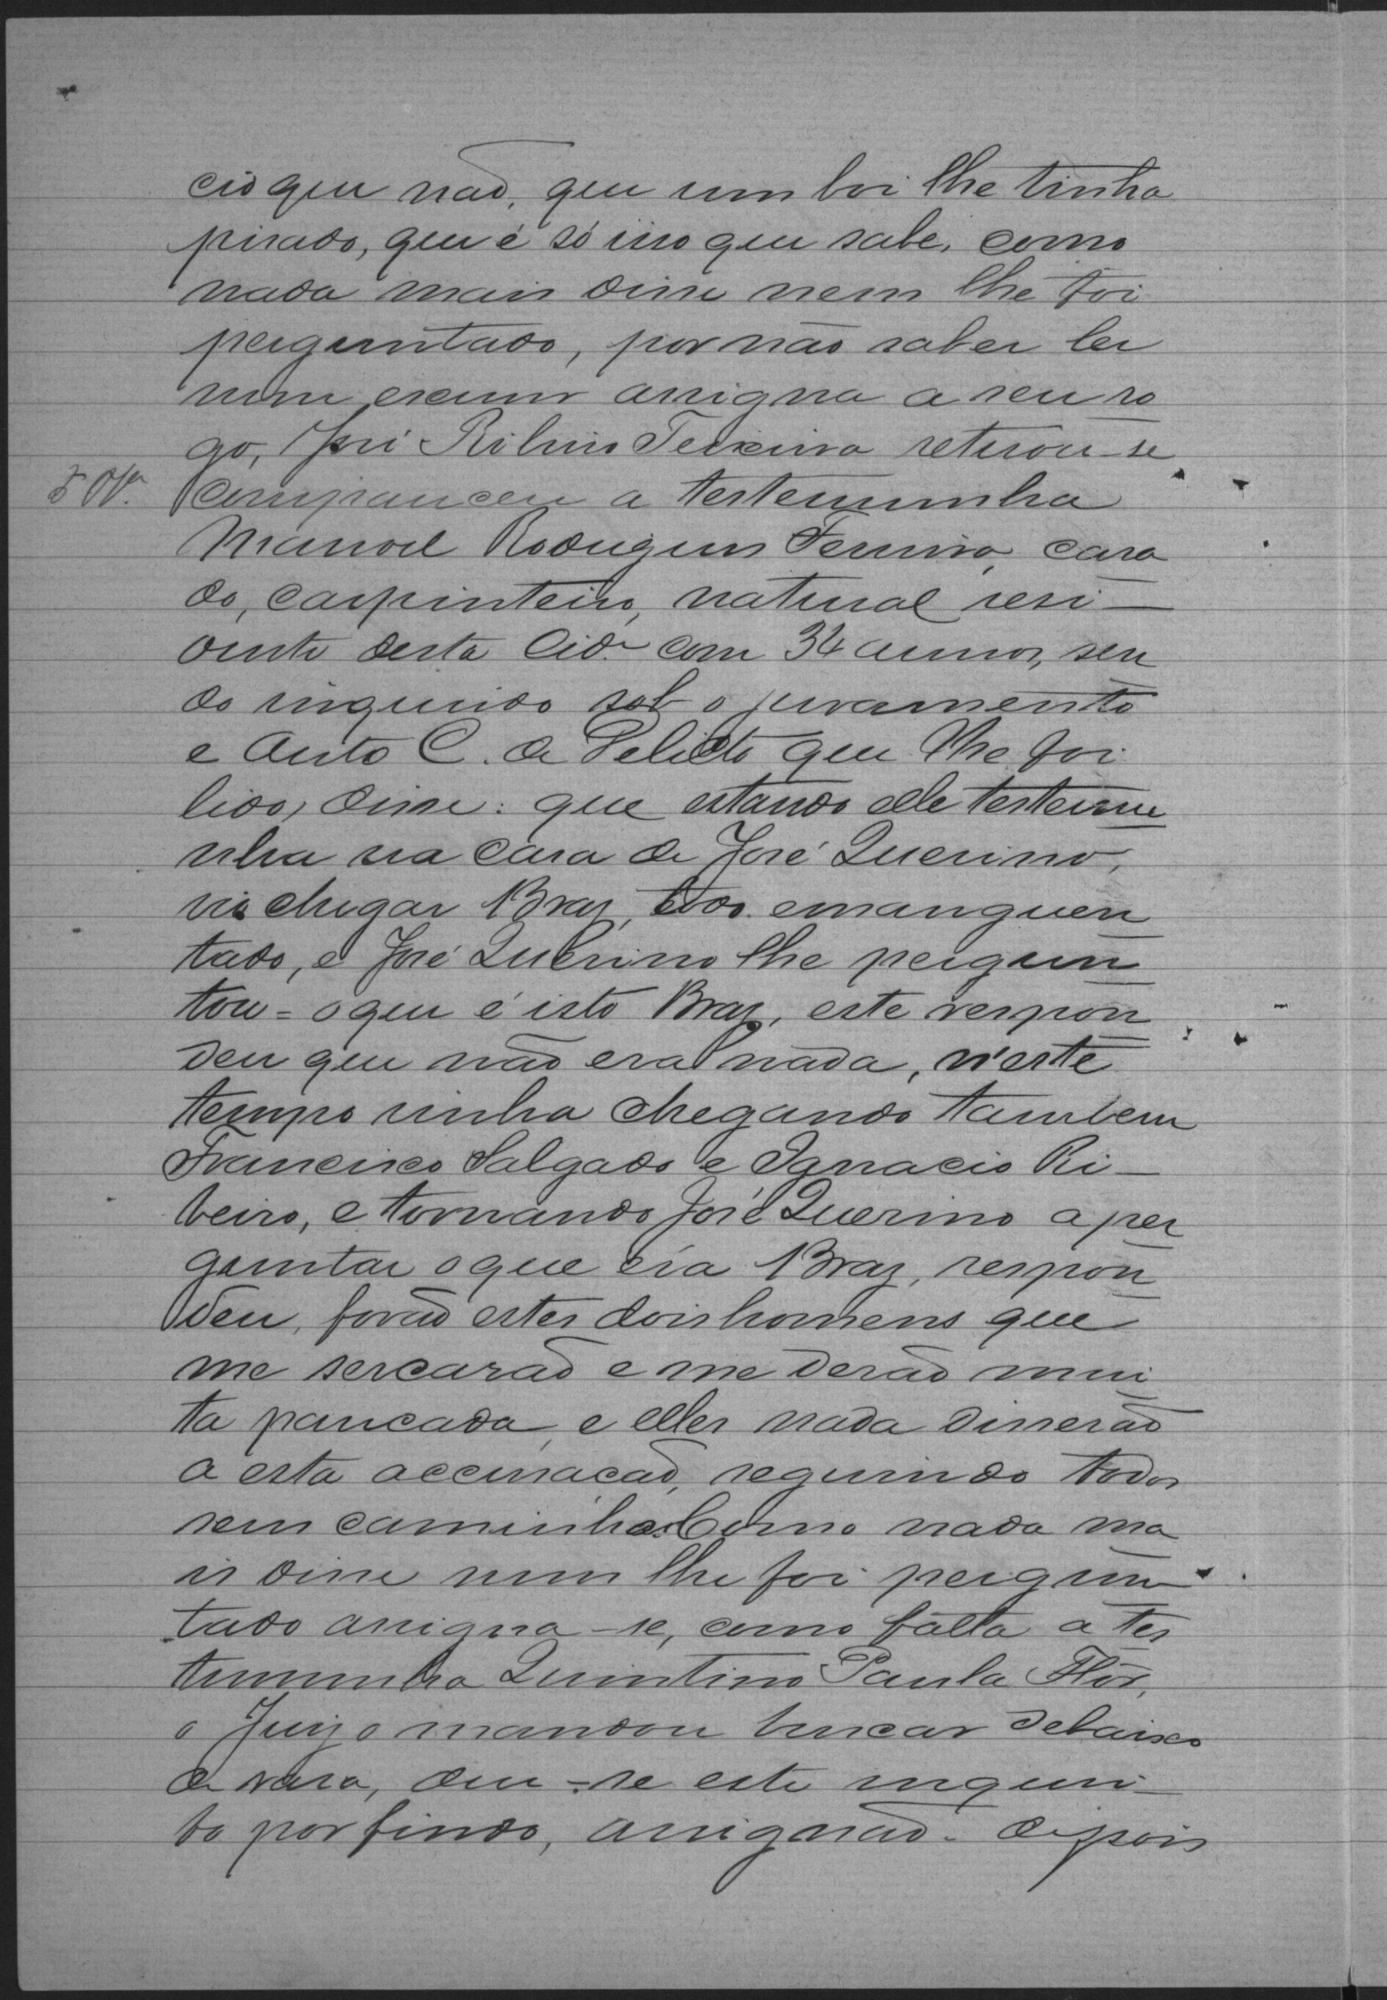 cio que não, que um boi lhe tinha
pisado, que é só isso que sabe, como
nada mais disse nem lhe foi
perguntado, por não saber ler
nem escrever assigna a seu ro
go, José Teixeira retirou-se
Compareceu a testemunha
Manoel Rodrigues Ferreira, casa
do, carpinteiro, natural resi-
dente desta Cide. com 34 annos, sen
do inquirido sob o juramento
e Auto C. de Delicto que lhe foi
lido, disse: que estando elle testemu
nha na casa de José Querino,
vio chegar Braz, todo emanguen
tado, e José Querino lhe pergun
tou = o que é isto Braz, este respon
deu que não era nada, n'este
tempo vinha chegando tambem
Francisco Salgado e Ignacio Ri-
beiro, e tornando José Querino a per
guntar o que era Braz, respon
deu, forão estes dois homens que
me sercarão e me derão mui
ta pancada, e elles nada disserão
a esta accusacão, seguindo todos
seu caminho. Como nada ma
is disse nem lhe foi pergun
tado assigna-se, como falta a tes
temunha Quintino Paula Flôr,
o Juizo mandou buscar debaixo
de vara, deu-se este inqueri-
to por findo, assignão. depois